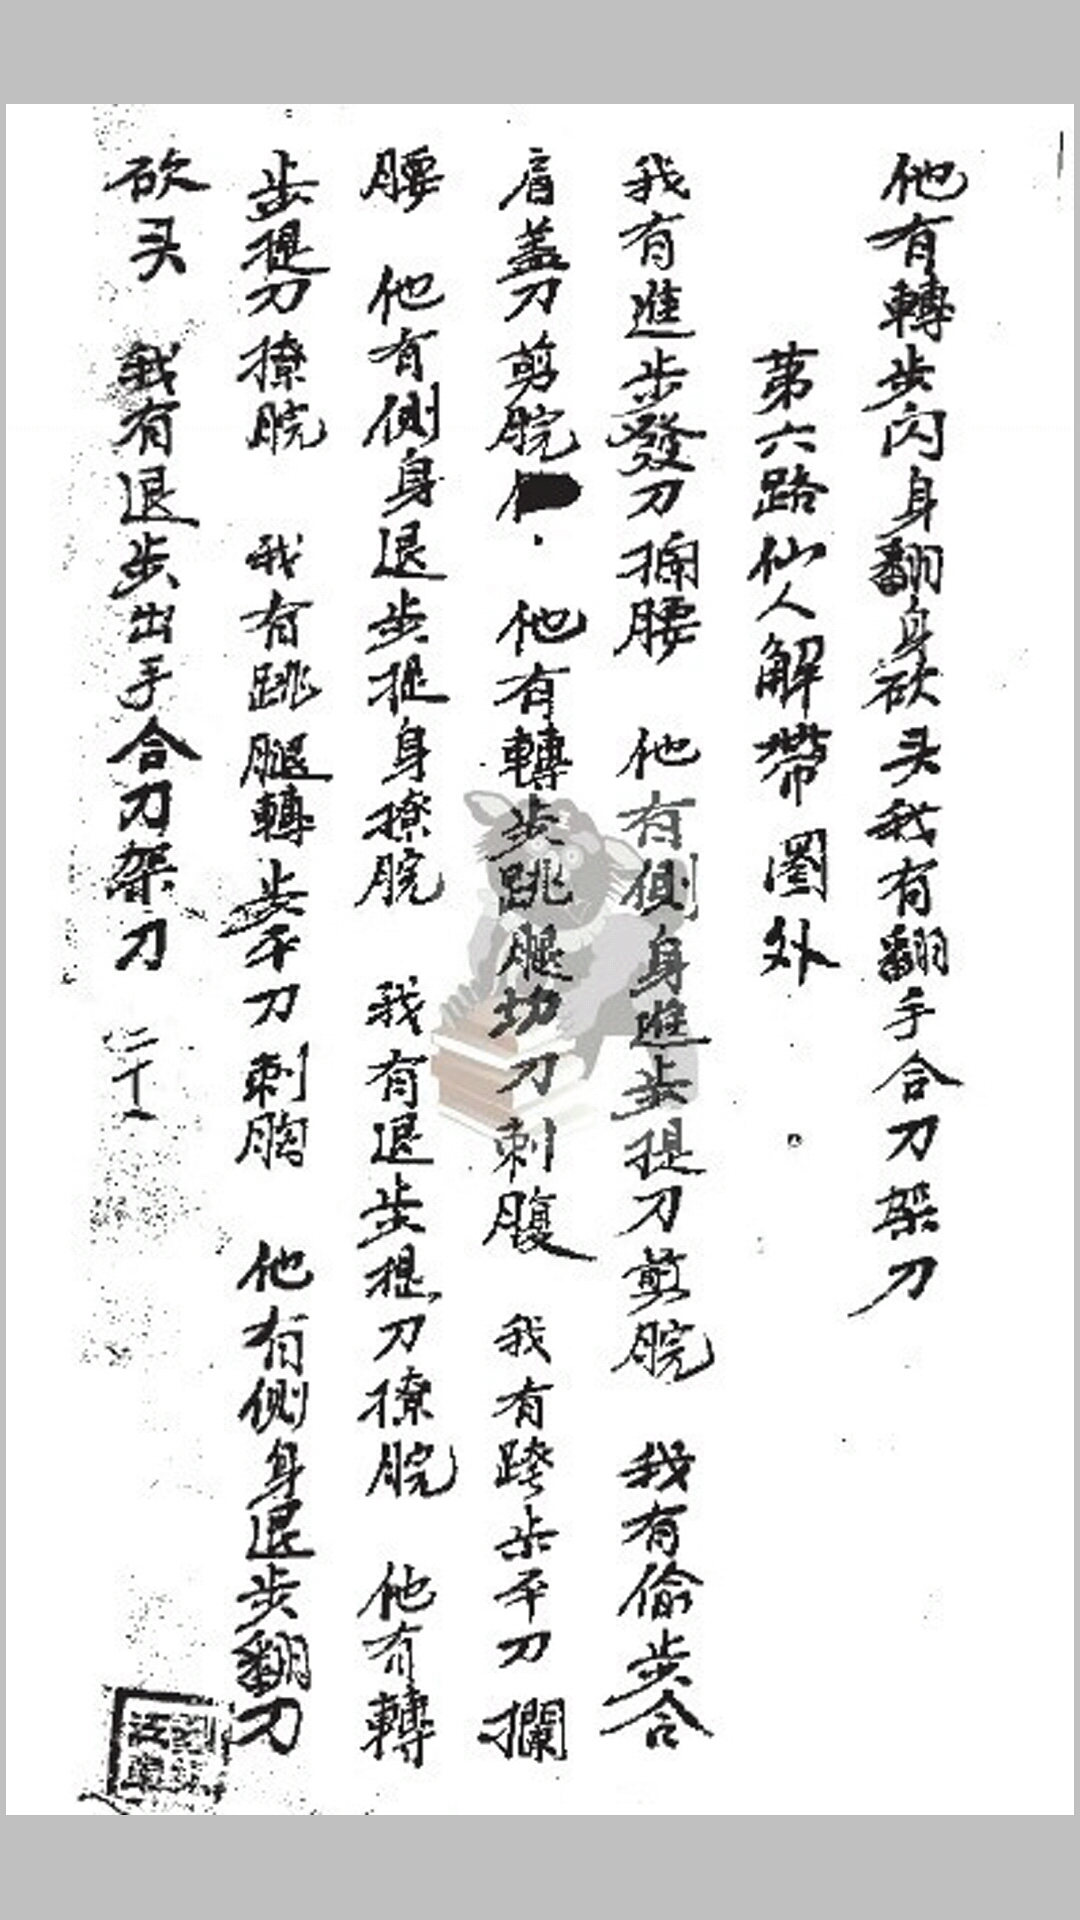 他有轉步闪身翻身砍头我有翻手合刀架刀
苐六路仙人解帶圈外
我有進步發刀掮腰 他有側身進步提刀剪脘 我有偷步合
肩盖刀剪脘 他有轉步跳腿切刀刺腹 我有跨步平刀攔
腰 他有側身退步提身撩脘 我有退步提刀撩脘 他有轉
步提刀撩脘 我有跳腿轉步平刀刺胸 他有側身退步翻刀
砍头 我有退步出手合刀架刀 二十八